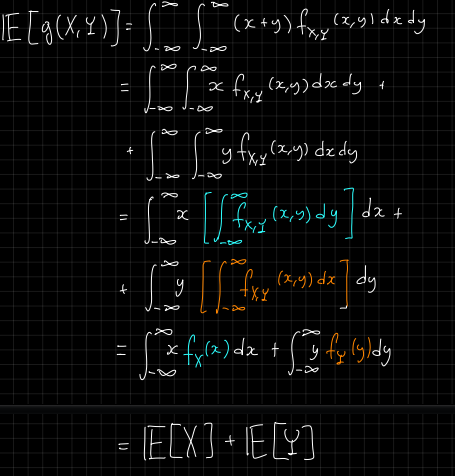 𝔼[g(X,Y)] = ∫_{-∞}^{∞} ∫_{-∞}^{∞} (x+y) f_{X,Y}(x,y) dx dy
= ∫_{-∞}^{∞} ∫_{-∞}^{∞} x f_{X,Y}(x,y) dx dy +
+ ∫_{-∞}^{∞} ∫_{-∞}^{∞} y f_{X,Y}(x,y) dx dy
= ∫_{-∞}^{∞} x [∫_{-∞}^{∞} f_{X,Y}(x,y) dy] dx +
+ ∫_{-∞}^{∞} y [∫_{-∞}^{∞} f_{X,Y}(x,y) dx] dy
= ∫_{-∞}^{∞} x f_X(x) dx + ∫_{-∞}^{∞} y f_Y(y) dy
= 𝔼[X] + 𝔼[Y]